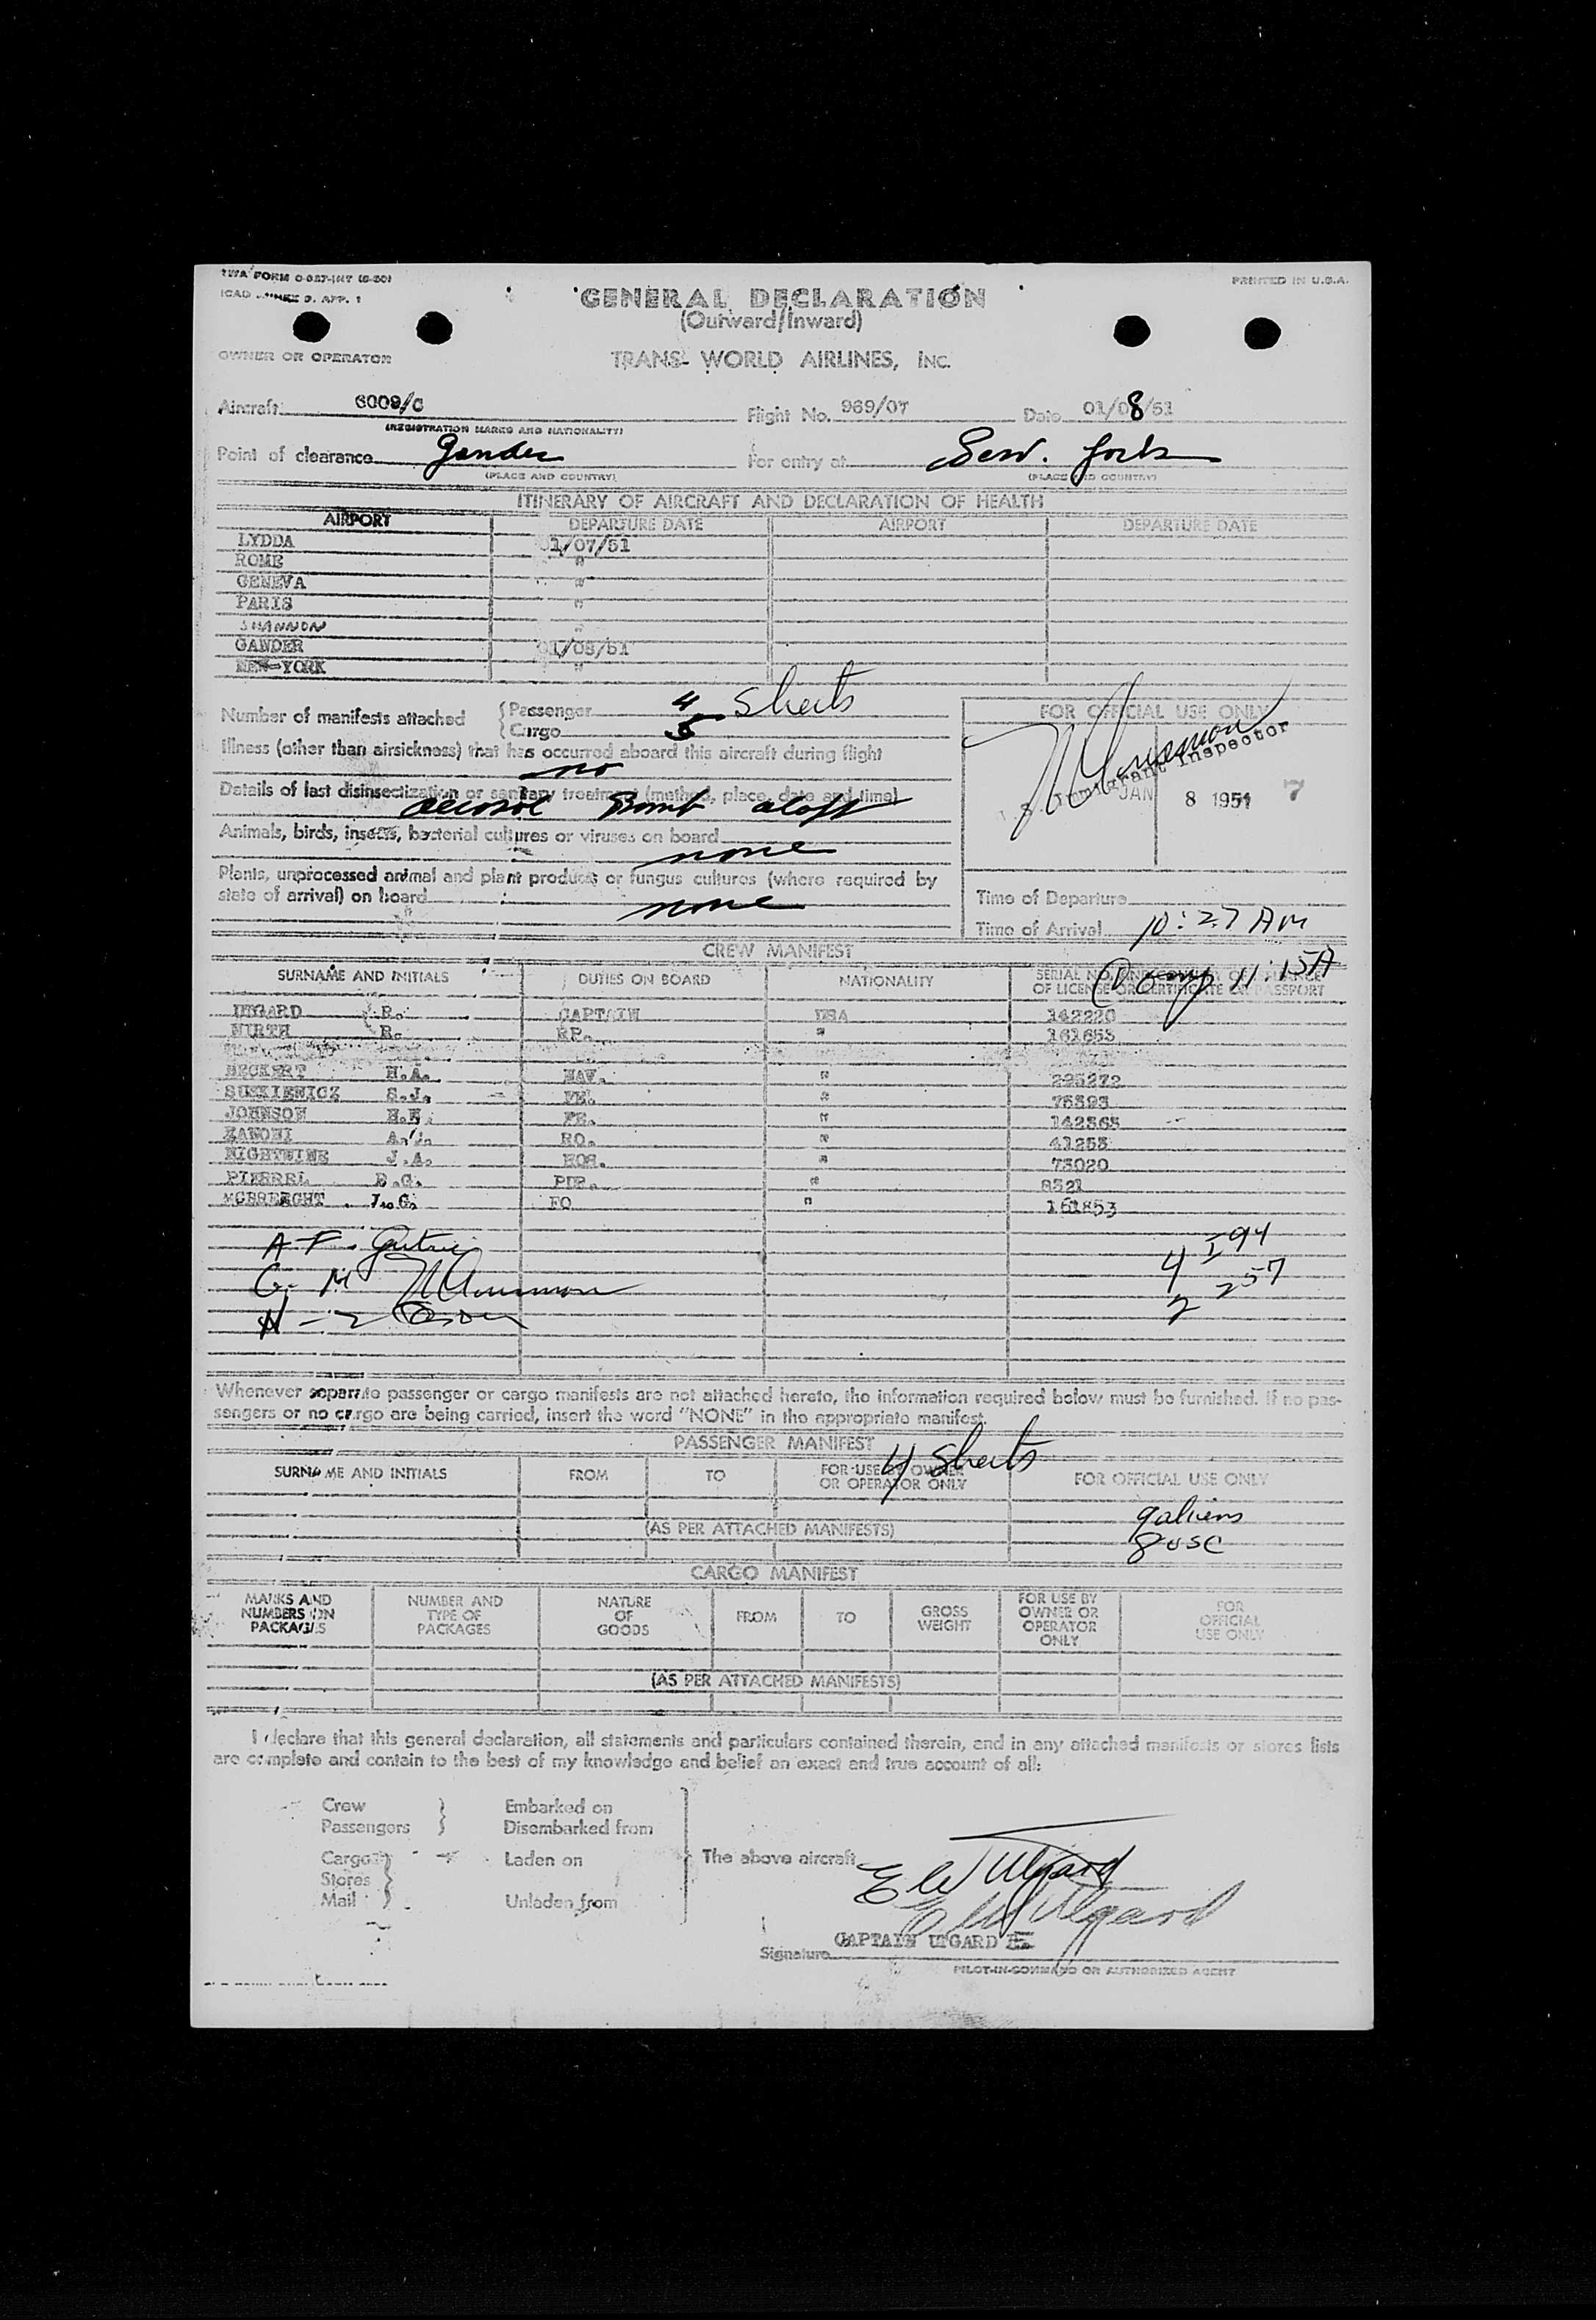 TWA FORM O-027-INT (6-50)
PRINTED IN U.S.A.
ICAO ANNEX 9, APP. 1
GENERAL DECLARATION
(Outward/Inward)
OWNER OR OPERATOR TRANS WORLD AIRLINES, INC.
Aircraft 6009/C Flight No. 969/07 Date 01/08/51
(REGISTRATION MARKS AND NATIONALITY)
Point of clearance Gander For entry at New York
(PLACE AND COUNTRY) (PLACE AND COUNTRY)
ITINERARY OF AIRCRAFT AND DECLARATION OF HEALTH
AIRPORT DEPARTURE DATE AIRPORT DEPARTURE DATE
LYDDA 01/07/51
ROME "
GENEVA "
PARIS "
SHANNON "
GANDER 01/08/51
NEW-YORK "
Number of manifests attached { Passenger 4 sheets
{ Cargo 5
FOR OFFICIAL USE ONLY
Immigrant Inspector
JAN 8 1951 7
Illness (other than airsickness) that has occurred aboard this aircraft during flight
no
Details of last disinsectization or sanitary treatment (method, place, date and time)
aerosol Bomb aloft
Animals, birds, insects, bacterial cultures or viruses on board
none
Plants, unprocessed animal and plant products or fungus cultures (where required by
state of arrival) on board
none
Time of Departure
Time of Arrival 10:27 AM
11:15A
CREW MANIFEST
SURNAME AND INITIALS DUTIES ON BOARD NATIONALITY SERIAL NO. AND OF LICENSE OR CERTIFICATE OR PASSPORT
UTGARD CAPTAIN USA 142220
HIRTH R. RP. " 161653
BECKERT H.A. NAV. " 295272
SUSKIEWICZ S.J. FE. " 75393
JOHNSON FE. " 142365
ZANONI RO. " 41255
NIGHTWINE J.A. HOS. " 73020
PIERREL E.G. PUR. " 8521
FO " 161853
4 I 94
2 257
Whenever separate passenger or cargo manifests are not attached hereto, the information required below must be furnished. If no pas-
sengers or no cargo are being carried, insert the word "NONE" in the appropriate manifest.
PASSENGER MANIFEST
4 sheets
SURNAME AND INITIALS FROM TO FOR USE BY OWNER OR OPERATOR ONLY FOR OFFICIAL USE ONLY
9 aliens
(AS PER ATTACHED MANIFESTS)
8 USC
CARGO MANIFEST
MARKS AND NUMBERS ON PACKAGES NUMBER AND TYPE OF PACKAGES NATURE OF GOODS FROM TO GROSS WEIGHT FOR USE BY OWNER OR OPERATOR ONLY FOR OFFICIAL USE ONLY
(AS PER ATTACHED MANIFESTS)
I declare that this general declaration, all statements and particulars contained therein, and in any attached manifests or stores lists
are complete and contain to the best of my knowledge and belief an exact and true account of all:
Crew Embarked on
Passengers Disembarked from
Cargo Laden on The above aircraft
Stores
Mail Unladen from
E W Utgard
E W Utgard
CAPTAIN UTGARD E.
Signature
PILOT-IN-COMMAND OR AUTHORIZED AGENT